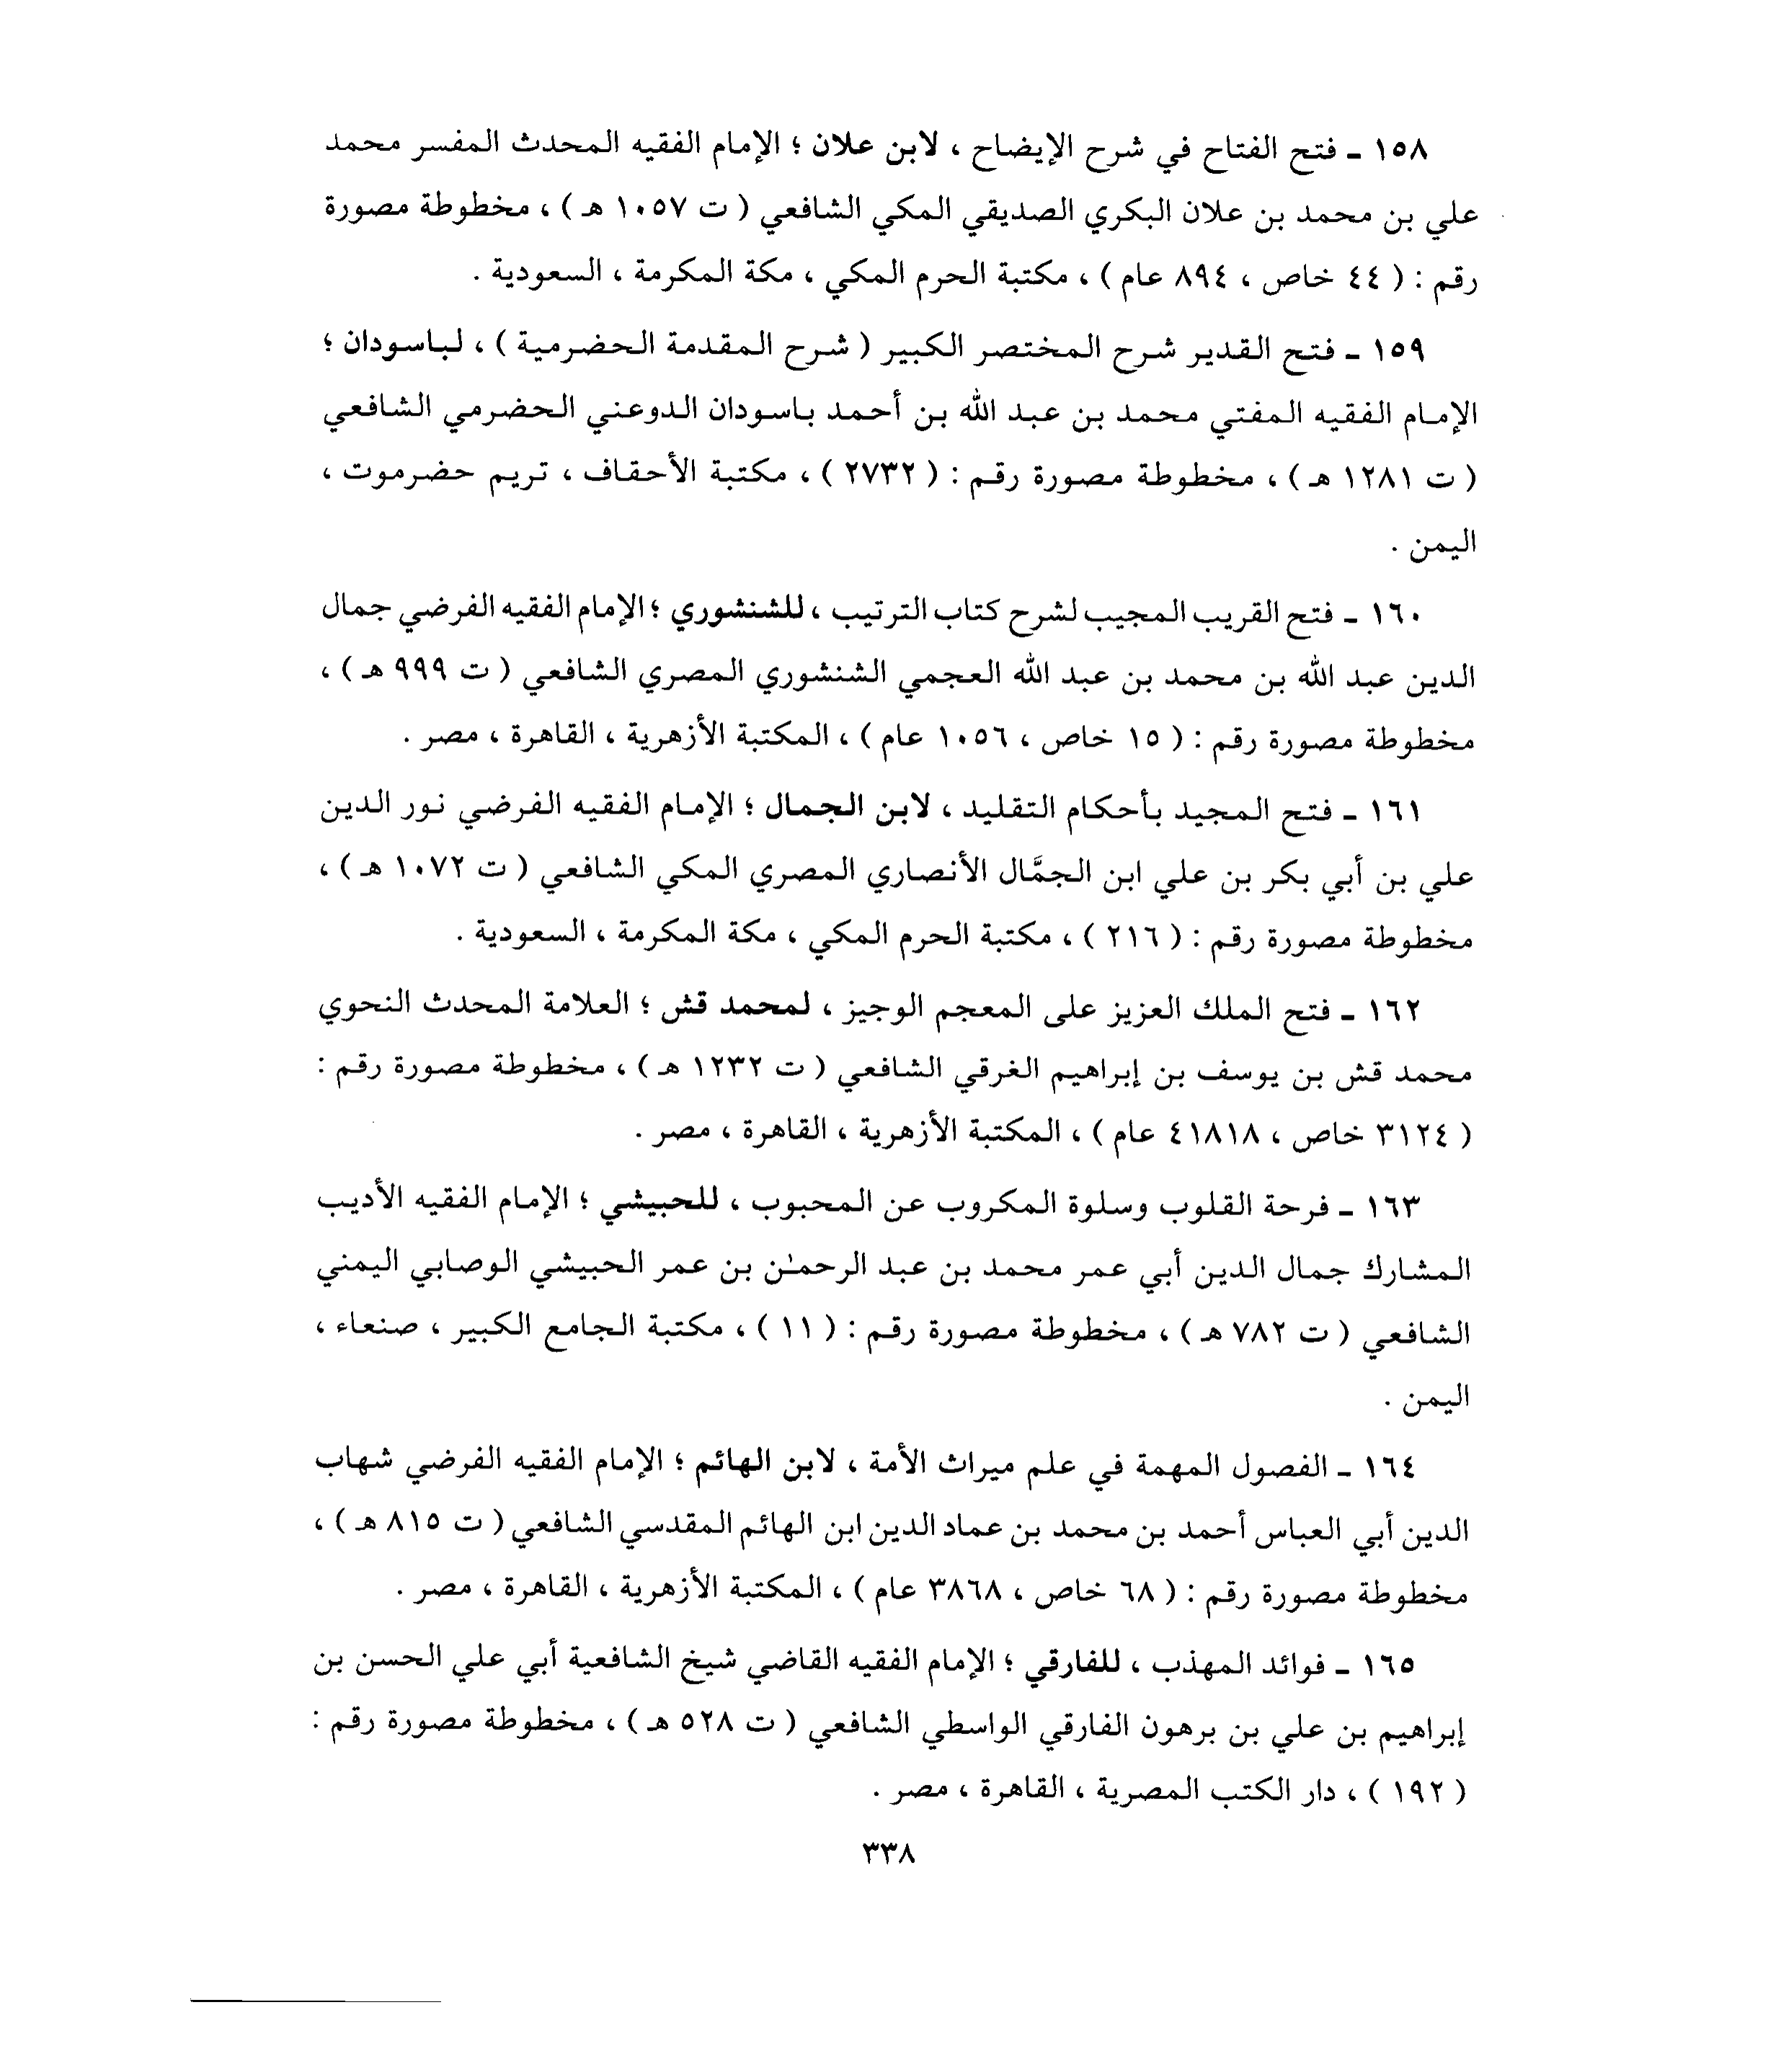 ١٥٨ - فتح الفتاح في شرح الإيضاح ، لابن علان ؛ الإمام الفقيه المحدث المفسر محمد
علي بن محمد بن علان البكري الصديقي المكي الشافعي ( ت ١٠٥٧ هـ ) ، مخطوطة مصورة
رقم : ( ٤٤ خاص ، ٨٩٤ عام ) ، مكتبة الحرم المكي ، مكة المكرمة ، السعودية .
١٥٩ - فتح القدير شرح المختصر الكبير ( شرح المقدمة الحضرمية ) ، لباسودان ؛
الإمام الفقيه المفتي محمد بن عبد الله بن أحمد باسودان الدوعني الحضرمي الشافعي
( ت ١٢٨١ هـ ) ، مخطوطة مصورة رقم : ( ٢٧٣٢ ) ، مكتبة الأحقاف ، تريم حضرموت ،
اليمن .
١٦٠ - فتح القريب المجيب لشرح كتاب الترتيب ، للشنشوري ؛ الإمام الفقيه الفرضي جمال
الدين عبد الله بن محمد بن عبد الله العجمي الشنشوري المصري الشافعي ( ت ٩٩٩ هـ ) ،
مخطوطة مصورة رقم : ( ١٥ خاص ، ١٠٥٦ عام ) ، المكتبة الأزهرية ، القاهرة ، مصر .
١٦١ - فتح المجيد بأحكام التقليد ، لابن الجمال ؛ الإمام الفقيه الفرضي نور الدين
علي بن أبي بكر بن علي ابن الجمَّال الأنصاري المصري المكي الشافعي ( ت ١٠٧٢ هـ ) ،
مخطوطة مصورة رقم : ( ٢١٦ ) ، مكتبة الحرم المكي ، مكة المكرمة ، السعودية .
١٦٢ - فتح الملك العزيز على المعجم الوجيز ، لمحمد قش ؛ العلامة المحدث النحوي
محمد قش بن يوسف بن إبراهيم الغرقي الشافعي ( ت ١٢٣٢ هـ ) ، مخطوطة مصورة رقم :
( ٣١٢٤ خاص ، ٤١٨١٨ عام ) ، المكتبة الأزهرية ، القاهرة ، مصر .
١٦٣ - فرحة القلوب وسلوة المكروب عن المحبوب ، للحبيشي ؛ الإمام الفقيه الأديب
المشارك جمال الدين أبي عمر محمد بن عبد الرحمٰن بن عمر الحبيشي الوصابي اليمني
الشافعي ( ت ٧٨٢ هـ ) ، مخطوطة مصورة رقم : ( ١١ ) ، مكتبة الجامع الكبير ، صنعاء ،
اليمن .
١٦٤ - الفصول المهمة في علم ميراث الأمة ، لابن الهائم ؛ الإمام الفقيه الفرضي شهاب
الدين أبي العباس أحمد بن محمد بن عماد الدين ابن الهائم المقدسي الشافعي ( ت ٨١٥ هـ ) ،
مخطوطة مصورة رقم : ( ٦٨ خاص ، ٣٨٦٨ عام ) ، المكتبة الأزهرية ، القاهرة ، مصر .
١٦٥ - فوائد المهذب ، للفارقي ؛ الإمام الفقيه القاضي شيخ الشافعية أبي علي الحسن بن
إبراهيم بن علي بن برهون الفارقي الواسطي الشافعي ( ت ٥٢٨ هـ ) ، مخطوطة مصورة رقم :
( ١٩٢ ) ، دار الكتب المصرية ، القاهرة ، مصر .
٣٣٨